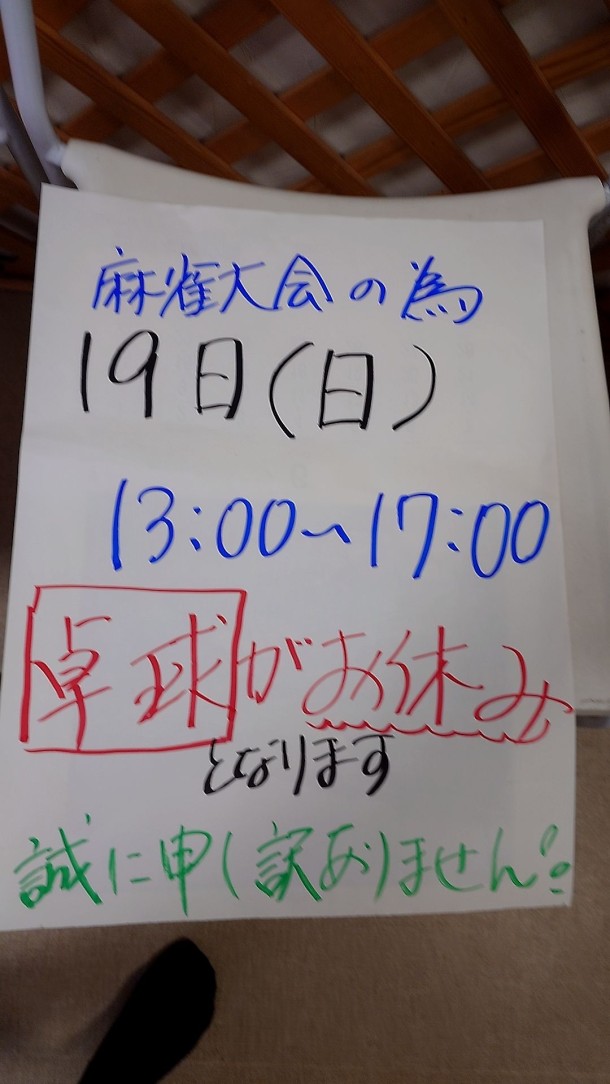 麻雀大会の為
19日(日)
13:00～17:00
卓球がお休み
となります
誠に申し訳ありません!!